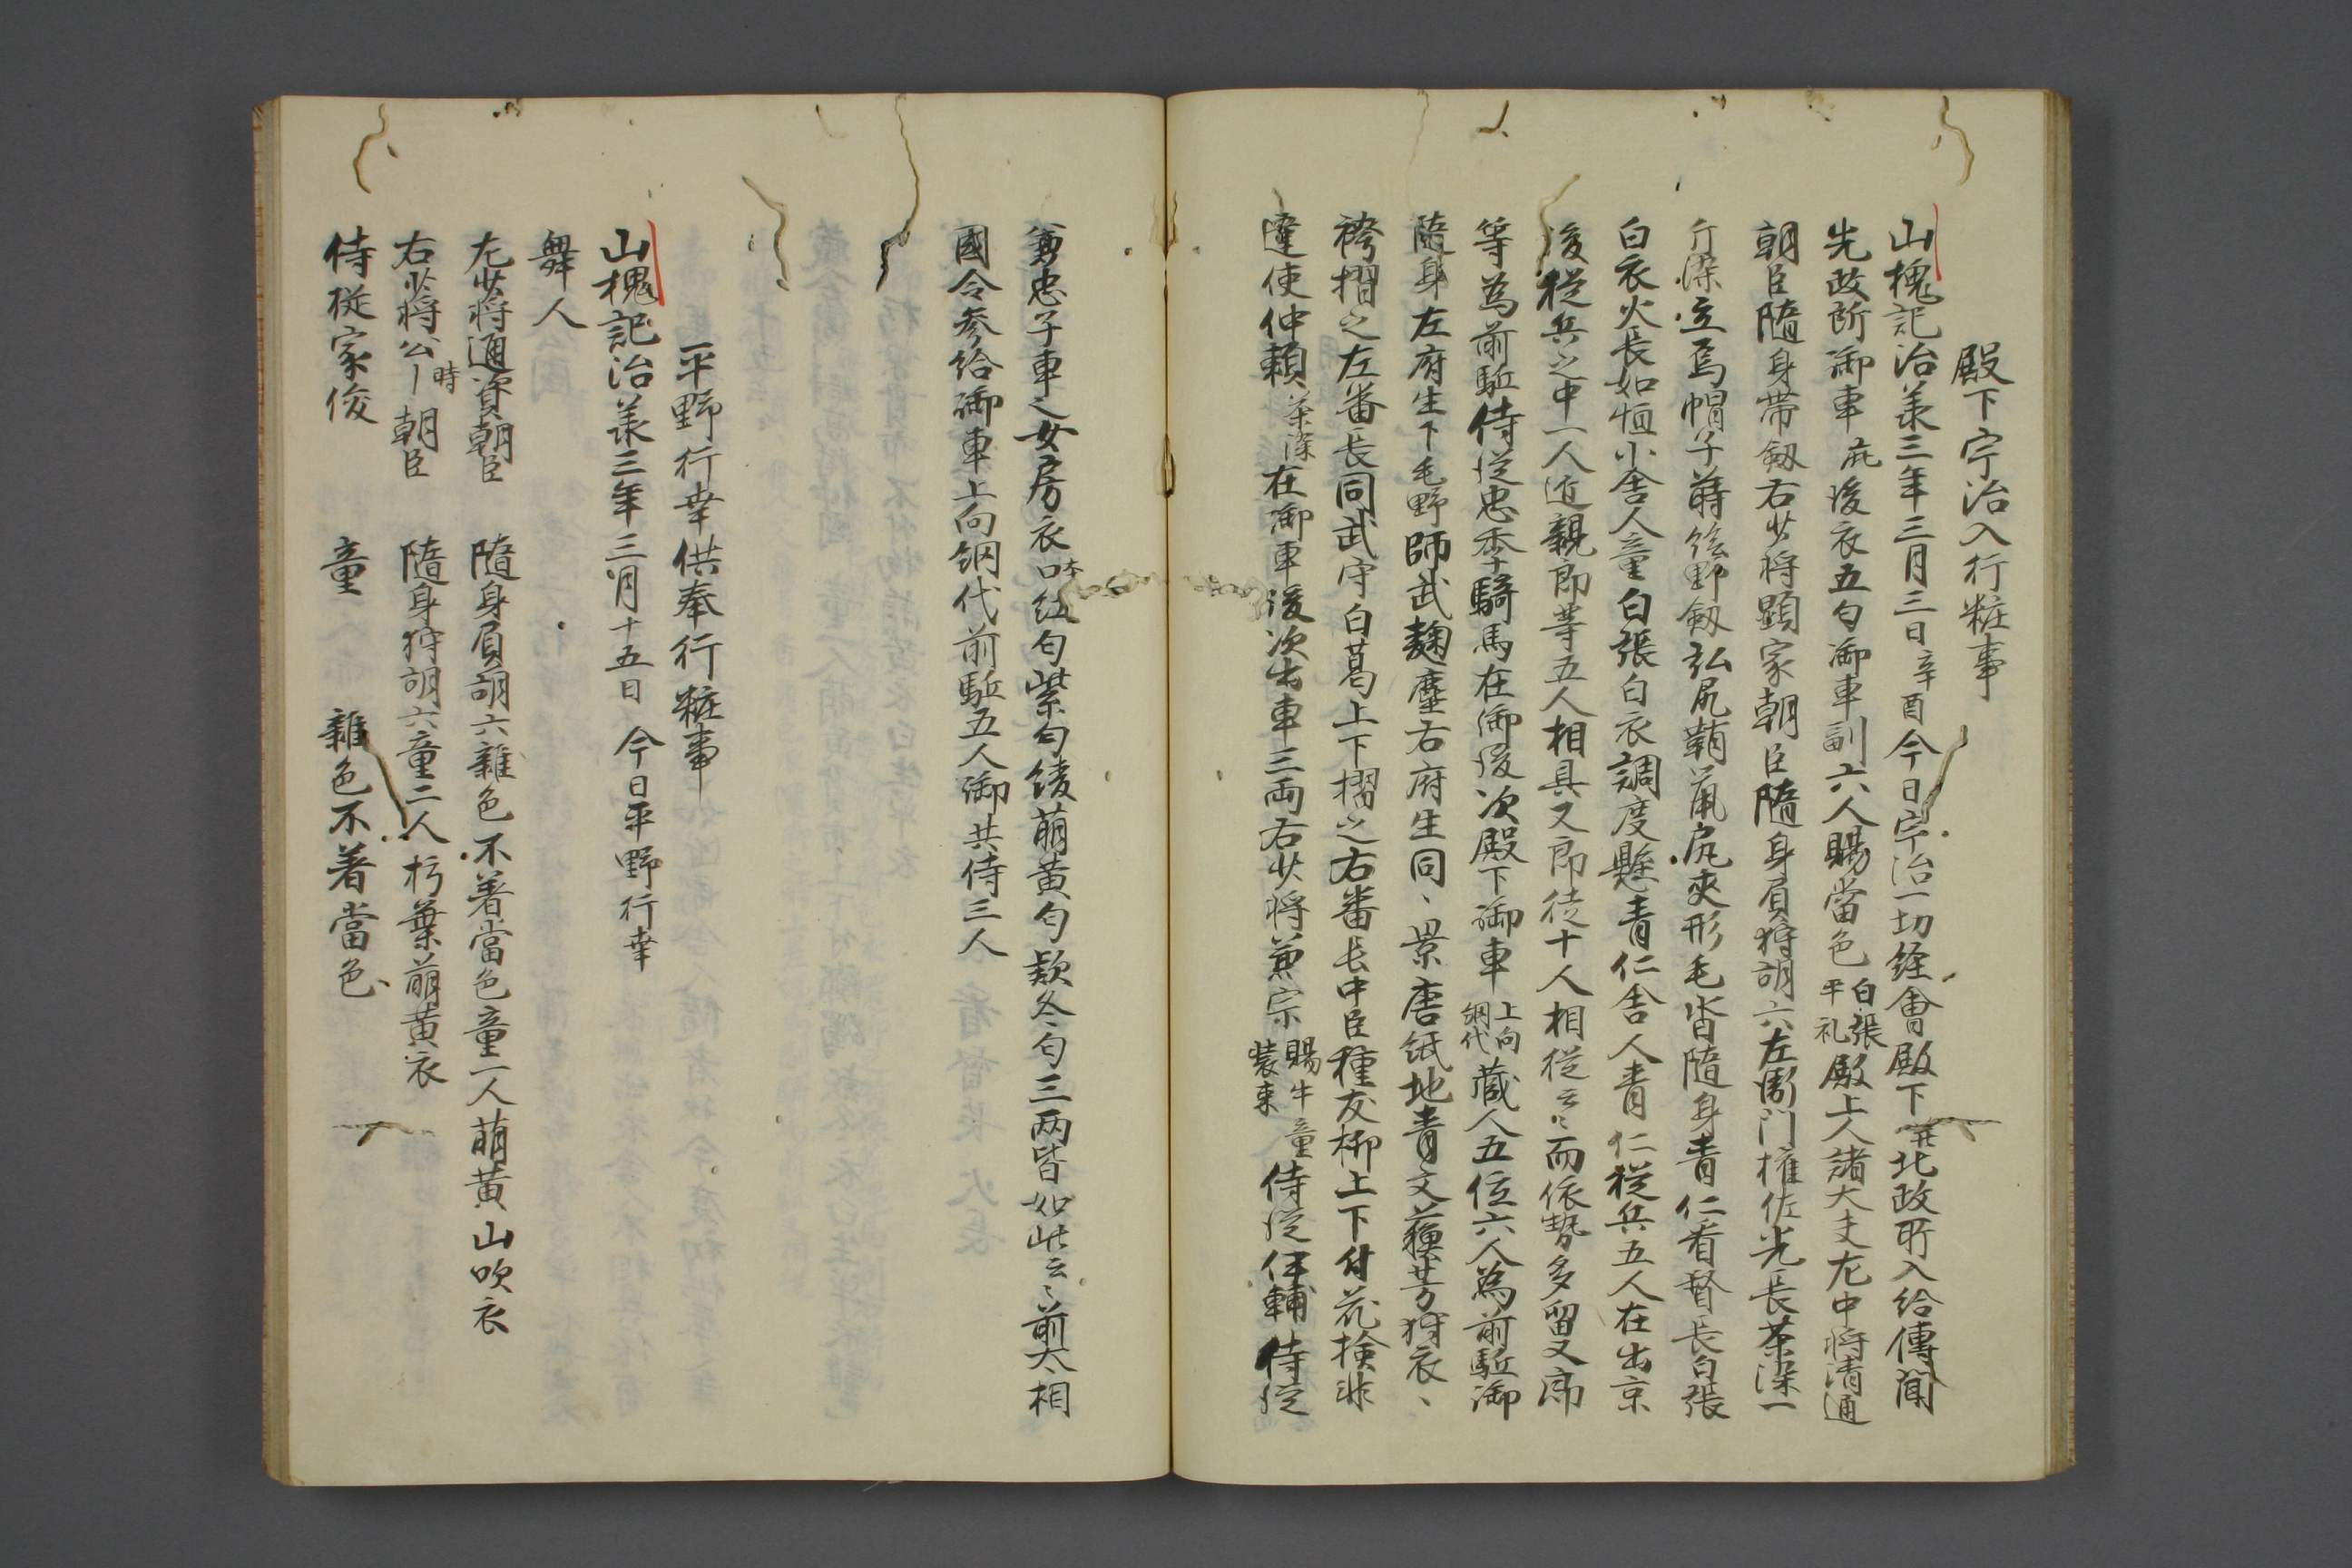 殿下宇治入行粧事
山槐記治羕三年三月三日辛酉今日宇治一切経會殿下并北政所入給傳聞
先政所御車庇後衣五匂御車副六人賜當色白張平礼殿上人諸大夫左中将清通
朝臣隨身帯釼右少将顕家朝臣隨身肩狩胡六左衛門権佐光長茶染一
斤染立烏帽子蒔絵野釼弘尻鞘䑕尻夾形毛沓隨身青仁看督長白張
白衣火長如恒小舎人童白張白衣調度懸青仁舎人青仁従兵五人在出京
後従兵之中一人近親郎等五人相具又郎徒十人相従云々而依勢多留又席
等為前駈侍従忠季騎馬在御後次殿下御車上向網代蔵人五位六人為前駈御
隨身左府生下毛野師武麹塵右府生同、景唐紙地青文蘓芳狩衣、
袴摺之左番長同武守白葛上下摺之右番長中臣種友柳上下付花検非
違使仲頼茶染在御車後次出車三両右少将兼宗賜牛童装束侍従伊輔侍従
兼忠子車之女房衣本紅匂紫匂綾萠黄匂欵冬匂三両皆如此云々前太相
國令参給御車上向網代前駈五人御共侍三人
一平野行幸供奉行粧事
山槐記治羕三年三月十五日　今日平野行幸
舞人
左少将通資朝臣　隨身肩胡六雑色不着當色童一人萠黄山吹衣
右少将公時朝臣　隨身狩胡六童二人朽葉萠黄衣
侍従家俊　童　雑色不着當色